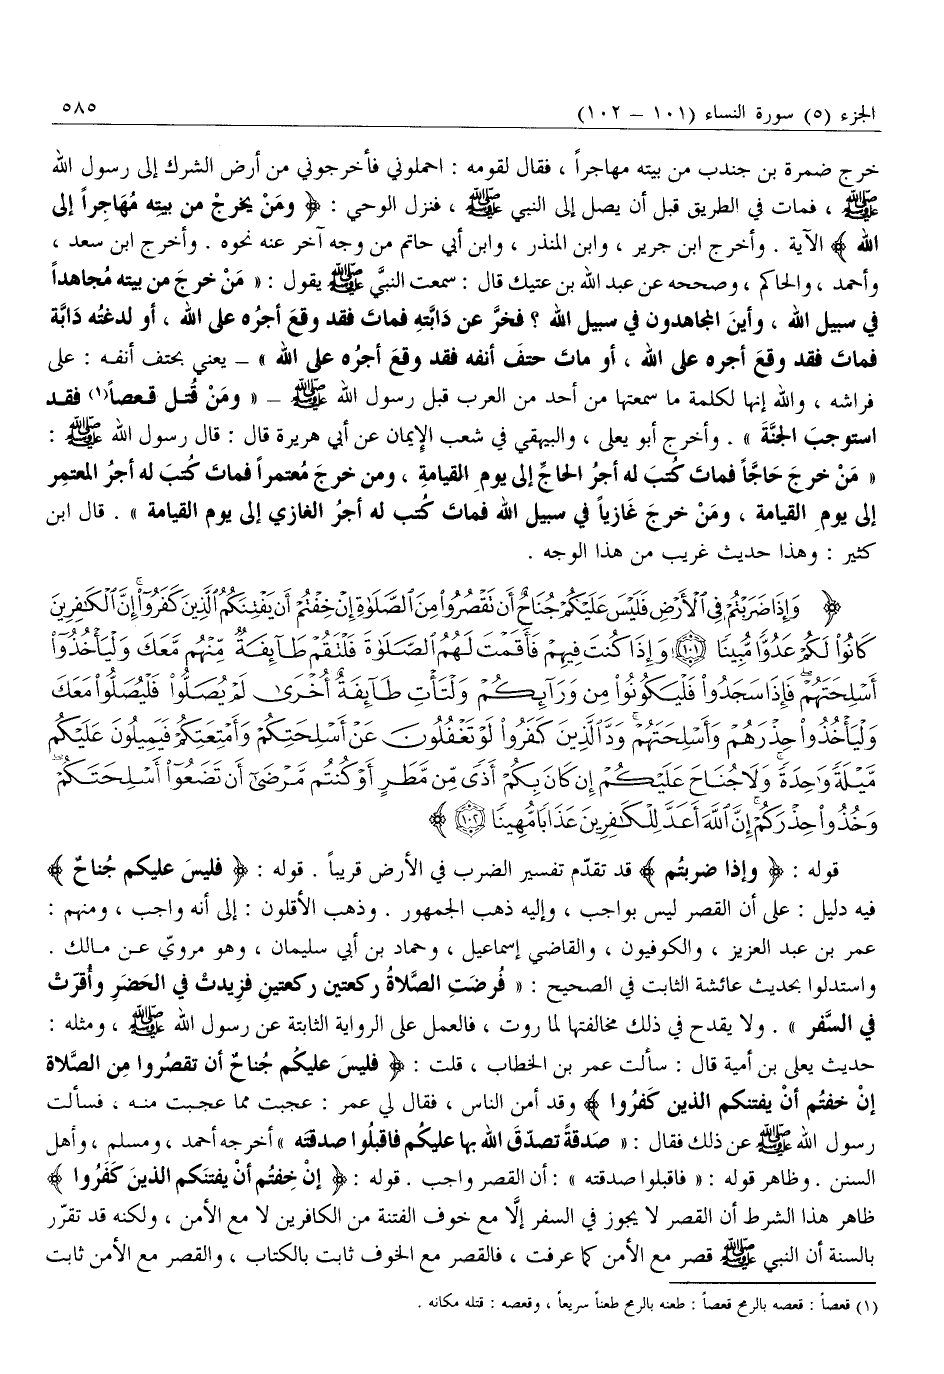 الجزء (٥) سورة النساء (١٠١ – ١٠٢) ٥٨٥
خرج ضمرة بن جندب من بيته مهاجراً ، فقال لقومه : احملوني فأخرجوني من أرض الشرك إلى رسول الله
ﷺ ، فمات في الطريق قبل أن يصل إلى النبي ﷺ ، فنزل الوحي : ﴿ ومَنْ يخرجْ من بيتِه مُهَاجِراً إلى
الله ﴾ الآية . وأخرج ابن جرير ، وابن المنذر ، وابن أبي حاتم من وجه آخر عنه نحوه . وأخرج ابن سعد ،
وأحمد ، والحاكم ، وصححه عن عبد الله بن عتيك قال : سمعت النبيَّ ﷺ يقول : « مَنْ خرجَ من بيته مُجاهداً
في سبيل الله ، وأينَ المجاهدون في سبيل الله ؟ فخرَّ عن دَابَّتِهِ فماتَ فقد وقعَ أجرُه على الله ، أو لدغتْه دَابَّة
فماتَ فقد وقعَ أجره على الله ، أو ماتَ حتفَ أنفه فقد وقعَ أجرُه على الله » – يعني بحتف أنفه : على
فراشه ، والله إنها لكلمة ما سمعتها من أحد من العرب قبل رسول الله ﷺ – « ومَنْ قُتل قعصاً(١) فقد
استوجبَ الجنَّةَ » . وأخرج أبو يعلى ، والبيهقي في شعب الإيمان عن أبي هريرة قال : قال رسول الله ﷺ :
« مَنْ خرجَ حَاجَّاً فماتَ كُتبَ له أجرُ الحاجِّ إلى يومِ القيامةِ ، ومن خرجَ مُعتمراً فماتَ كُتبَ له أجرُ المعتمِر
إلى يومِ القيامة ، ومَنْ خرجَ غَازياً في سبيل الله فماتَ كُتب له أجرُ الغازي إلى يوم القيامة » . قال ابن
كثير : وهذا حديث غريب من هذا الوجه .
﴿ وَإِذَا ضَرَبْتُمْ فِي ٱلْأَرْضِ فَلَيْسَ عَلَيْكُمْ جُنَاحٌ أَن تَقْصُرُوا۟ مِنَ ٱلصَّلَوٰةِ إِنْ خِفْتُمْ أَن يَفْتِنَكُمُ ٱلَّذِينَ كَفَرُوٓا۟ ۚ إِنَّ ٱلْكَٰفِرِينَ
كَانُوا۟ لَكُمْ عَدُوًّا مُّبِينًا ١٠١ وَإِذَا كُنتَ فِيهِمْ فَأَقَمْتَ لَهُمُ ٱلصَّلَوٰةَ فَلْتَقُمْ طَآئِفَةٌ مِّنْهُم مَّعَكَ وَلْيَأْخُذُوٓا۟
أَسْلِحَتَهُمْ فَإِذَا سَجَدُوا۟ فَلْيَكُونُوا۟ مِن وَرَآئِكُمْ وَلْتَأْتِ طَآئِفَةٌ أُخْرَىٰ لَمْ يُصَلُّوا۟ فَلْيُصَلُّوا۟ مَعَكَ
وَلْيَأْخُذُوا۟ حِذْرَهُمْ وَأَسْلِحَتَهُمْ ۗ وَدَّ ٱلَّذِينَ كَفَرُوا۟ لَوْ تَغْفُلُونَ عَنْ أَسْلِحَتِكُمْ وَأَمْتِعَتِكُمْ فَيَمِيلُونَ عَلَيْكُم
مَّيْلَةً وَٰحِدَةً ۚ وَلَا جُنَاحَ عَلَيْكُمْ إِن كَانَ بِكُمْ أَذًى مِّن مَّطَرٍ أَوْ كُنتُم مَّرْضَىٰٓ أَن تَضَعُوٓا۟ أَسْلِحَتَكُمْ ۖ
وَخُذُوا۟ حِذْرَكُمْ ۗ إِنَّ ٱللَّهَ أَعَدَّ لِلْكَٰفِرِينَ عَذَابًا مُّهِينًا ١٠٢ ﴾
قوله : ﴿ وإذا ضربتُم ﴾ قد تقدّم تفسير الضرب في الأرض قريباً . قوله : ﴿ فليسَ عليكم جُناحٌ ﴾
فيه دليل : على أن القصر ليس بواجب ، وإليه ذهب الجمهور . وذهب الأقلون : إلى أنه واجب ، ومنهم :
عمر بن عبد العزيز ، والكوفيون ، والقاضي إسماعيل ، وحماد بن أبي سليمان ، وهو مرويّ عن مالك .
واستدلوا بحديث عائشة الثابت في الصحيح : « فُرضَتِ الصَّلاةُ ركعتين ركعتينِ فزِيدتْ في الحَضَرِ وأُقرّتْ
في السَّفر » . ولا يقدح في ذلك مخالفتها لما روت ، فالعمل على الرواية الثابتة عن رسول الله ﷺ ، ومثله :
حديث يعلى بن أمية قال : سألت عمر بن الخطاب ، قلت : ﴿ فليسَ عليكُم جُناحٌ أن تقصُروا مِن الصَّلاة
إنْ خفتُم أنْ يفتنكم الذين كَفرُوا ﴾ وقد أمن الناس ، فقال لي عمر : عجبت مما عجبت منه ، فسألت
رسول الله ﷺ عن ذلك فقال : « صَدقةٌ تصدّقَ الله بها عليكُم فاقبلُوا صدقتَه » أخرجه أحمد ، ومسلم ، وأهل
السنن . وظاهر قوله : « فاقبلوا صدقته » : أن القصر واجب . قوله : ﴿ إنْ خِفتُم أنْ يفتنَكم الذينَ كَفَرُوا ﴾
ظاهر هذا الشرط أن القصر لا يجوز في السفر إلَّا مع خوف الفتنة من الكافرين لا مع الأمن ، ولكنه قد تقرّر
بالسنة أن النبي ﷺ قصر مع الأمن كما عرفت ، فالقصر مع الخوف ثابت بالكتاب ، والقصر مع الأمن ثابت
(١) قعصاً : قعصه بالرمح قعصاً : طعنه بالرمح طعناً سريعاً ، وقعصه : قتله مكانه .